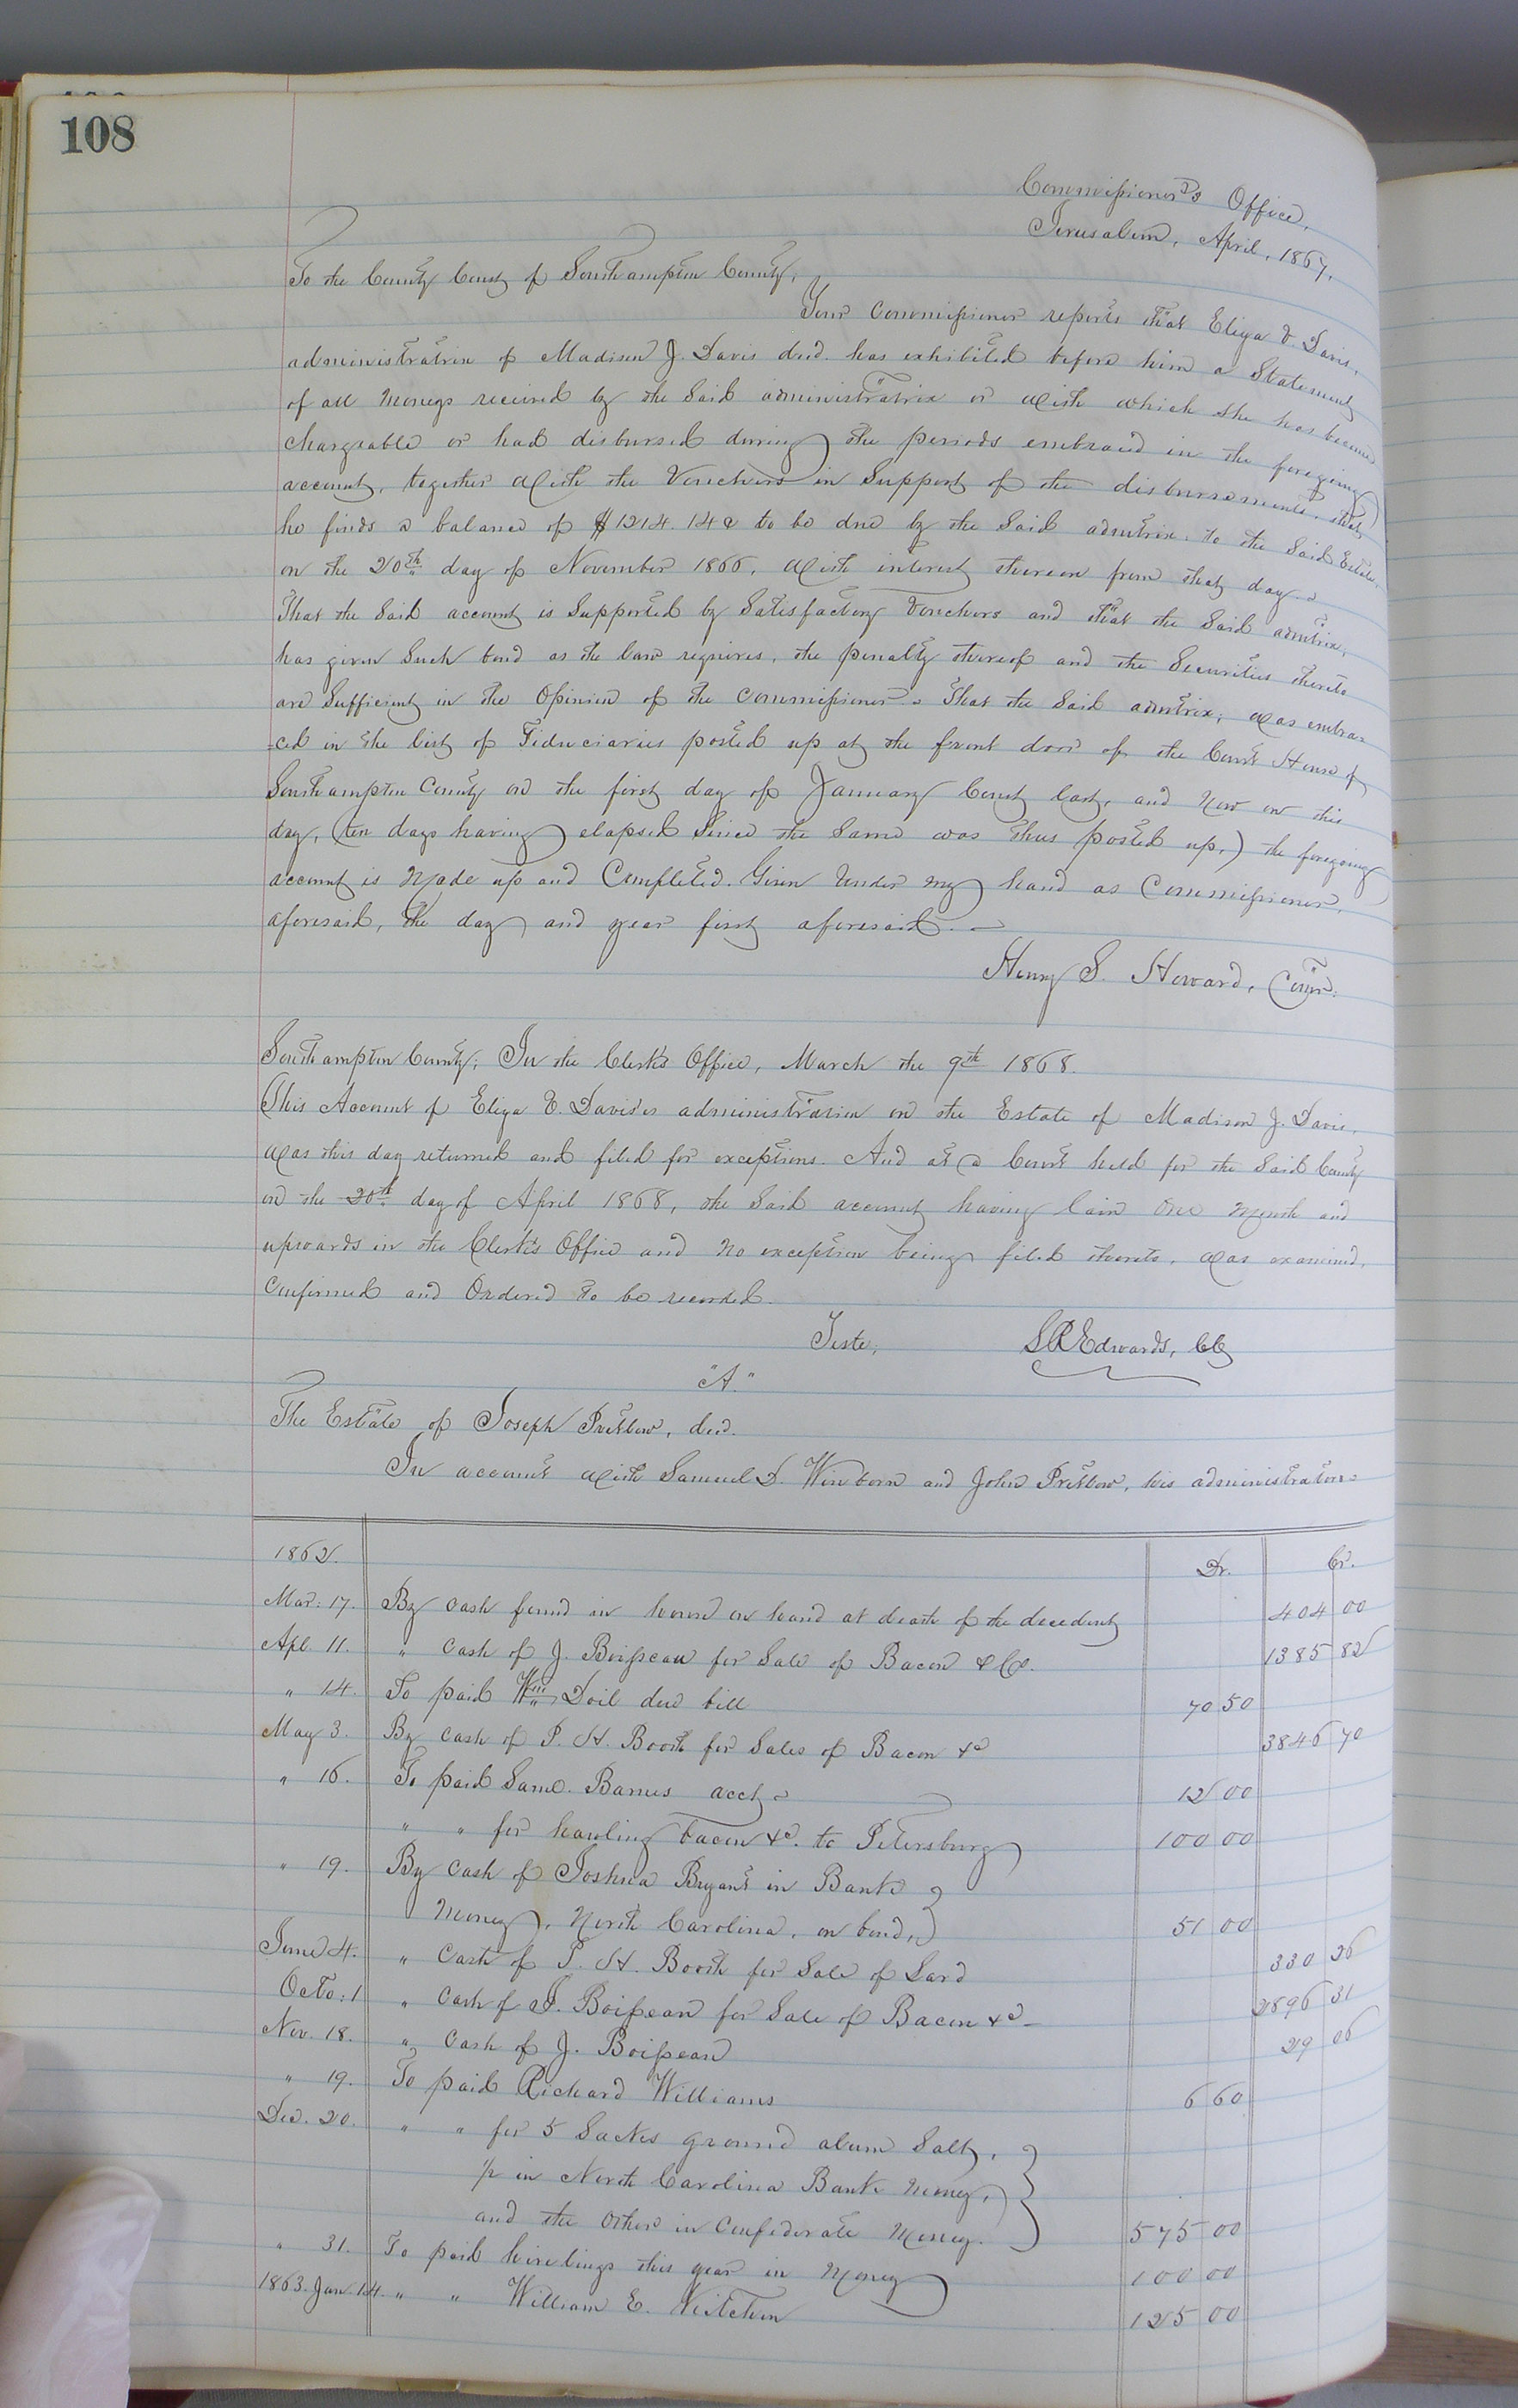 108
Commissioner's Office,
Jerusalem, April, 1867.
To the County Court of Southampton County,
Your Commissioner reports that Eliza E. Davis,
administratrix of Madison J. Davis decd. has exhibited before him a Statement
of all moneys received by the said administratrix or with which she has become
chargeable or had disbursed during the periods embraced in the foregoing
account, together with the Vouchers in Support of the disbursements, that
he finds a balance of $1214.14c to be due by the said admtrix. to the said Estate,
on the 20th day of November 1866, with interest thereon from that day.
That the said account is Supported by Satisfactory Vouchers and that the said admtrix,
has given Such bond as the law requires, the penalty thereof and the Securities thereto
are Sufficient in the Opinion of the Commissioner. That the said admtrix, was embra-
-ced in the list of Fiduciaries posted up at the front door of the Court House of
Southampton County on the first day of January Court last, and now on this
day, (ten days having elapsed since the same was thus posted up,) the foregoing
account is Made up and Completed. Given Under my hand as Commissioner,
aforesaid, the day and year first aforesaid.
Henry S. Howard, Comr.
Southampton County: In the Clerk's Office, March the 9th 1868.
This Account of Eliza E. Davis's administration on the Estate of Madison J. Davis,
was this day returned and filed for exceptions. And at a Court held for the Said County
on the 20th day of April 1868, the Said account having lain One Month and
upwards in the Clerk's Office and no exception being filed thereto, was examined,
Confirmed and Ordered to be recorded.
Teste, LR Edwards, CC
"A."
The Estate of Joseph Pretlow, decd.
In account with Samuel D. Winborn and John Pretlow, his administrators
1862. Dr. Cr.
Mar. 17. By cash found in house on hand at death of the decedent 404 00
Apl. 11. " Cash of J. Boisseau for Sale of Bacon &c. 1385 82
" 14. To paid Wm Doil due bill 70 50
May 3. By cash of P. H. Booth for Sales of Bacon &c 3846 70
" 16. To paid Saml. Barnes acct. 12 00
" " for hauling bacon &c. to Petersburg 100 00
" 19. By Cash of Joshua Bryant in Bank
Money, North Carolina, on bond, 51 00
June 4. " Cash of P. H. Booth for Sale of Lard 330 26
Octo: 1 " Cash of J. Boisseau for Sale of Bacon &c 2896 31
Nov. 18. " Cash of J. Boisseau 29 06
" 19. To paid Richard Williams 6 60
Dec. 20. " " for 5 Sacks ground alum Salt,
1/2 in North Carolina Bank Money,
and the Other in Confederate Money. 575 00
" 31. To paid hirelings this year in Money 100 00
1863. Jan. 14. " " William E. 125 00